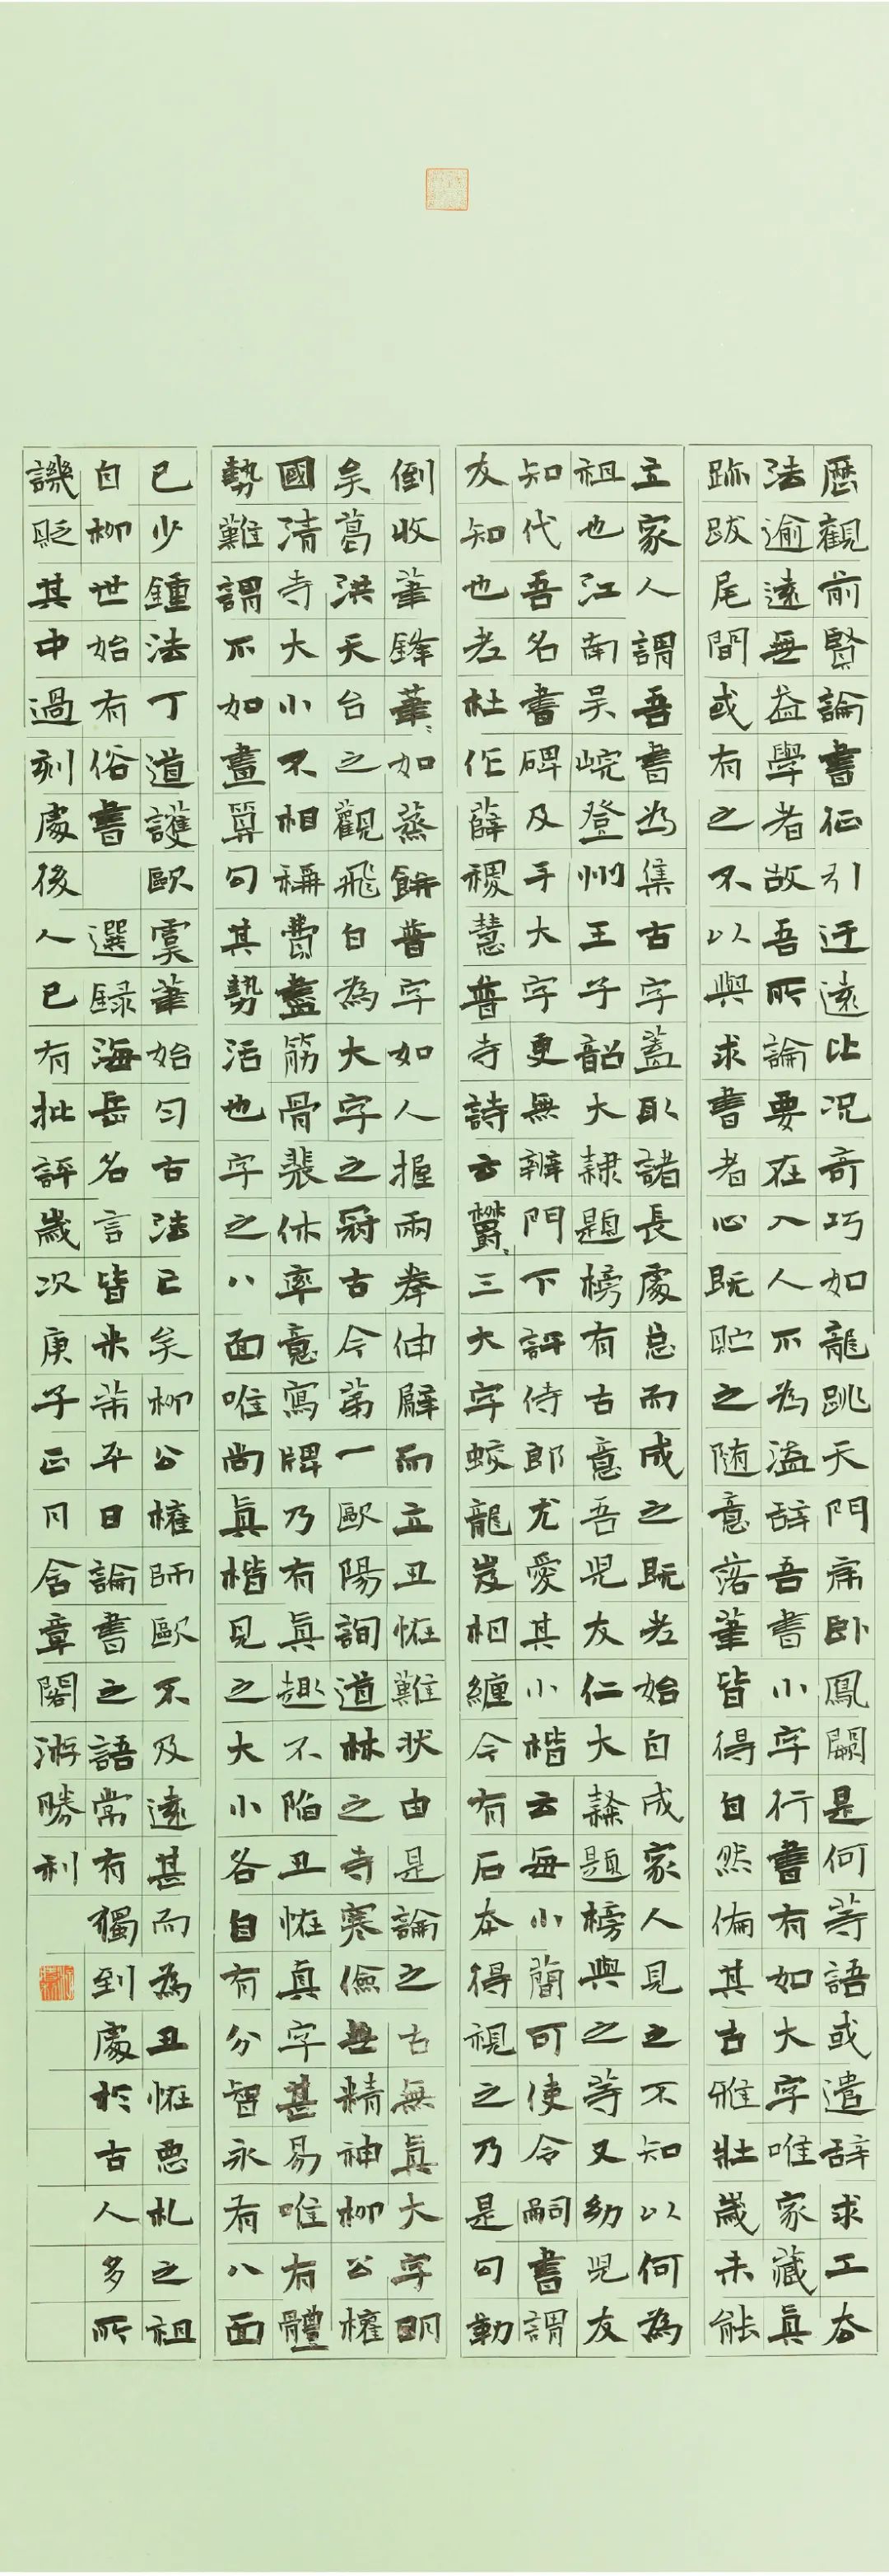 曆觀前賢論書征引迂遠比况奇巧如龍跳天門虎卧鳳闕是何等語或遣辭求工去
法逾遠無益學者故吾所論要在入人不為溢辭吾書小字行書有如大字唯家藏真
跡跋尾間或有之不以與求書者心既貯之随意落筆皆得自然備其古雅壯歲未能
立家人謂吾書為集古字蓋取諸長處總而成之既老始自成家人見之不知以何為
祖也江南吴皖登州王子韶大隸題榜有古意吾兒友仁大隸題榜與之等又幼兒友
知代吾名書碑及手大字更無辨門下許侍郎尤愛其小楷云每小簡可使令嗣書謂
友知也老杜作薛稷慧普寺詩云鬱々三大字蛟龍岌相纏今有石本得視之乃是勾勒
倒收筆鋒筆々如蒸餅普字如人握兩拳伸臂而立丑怪難狀由是論之古無真大字明
矣葛洪天台之觀飛白為大字之冠古今第一歐陽詢道林之寺寒儉無精神柳公權
國清寺大小不相稱費盡筋骨裴休率意寫牌乃有真趣不陷丑怪真字甚易唯有體
勢難謂不如畫算勾其勢活也字之八面唯尚真楷見之大小各自有分智永有八面
已少鍾法丁道護歐虞筆始勻古法亡矣柳公權師歐不及遠甚而為丑怪惡札之祖
自柳世始有俗書 選録海岳名言皆米芾平日論書之語常有獨到處於古人多所
譏貶其中過刻處後人已有批評歲次庚子正月含章閣游勝利